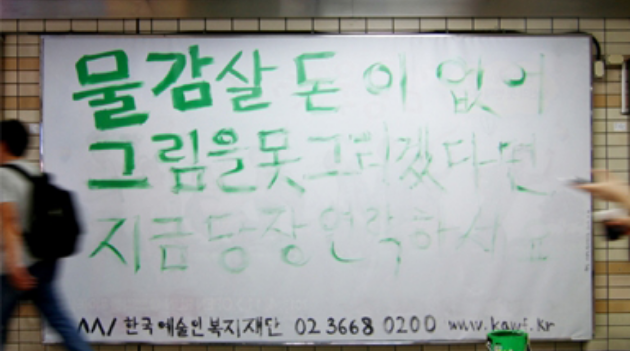 물감살 돈이 없어
그림을 못 그리겠다면
지금 당장 연락하세요
한국예술인복지재단 02 3668 0200 www.kawf.kr